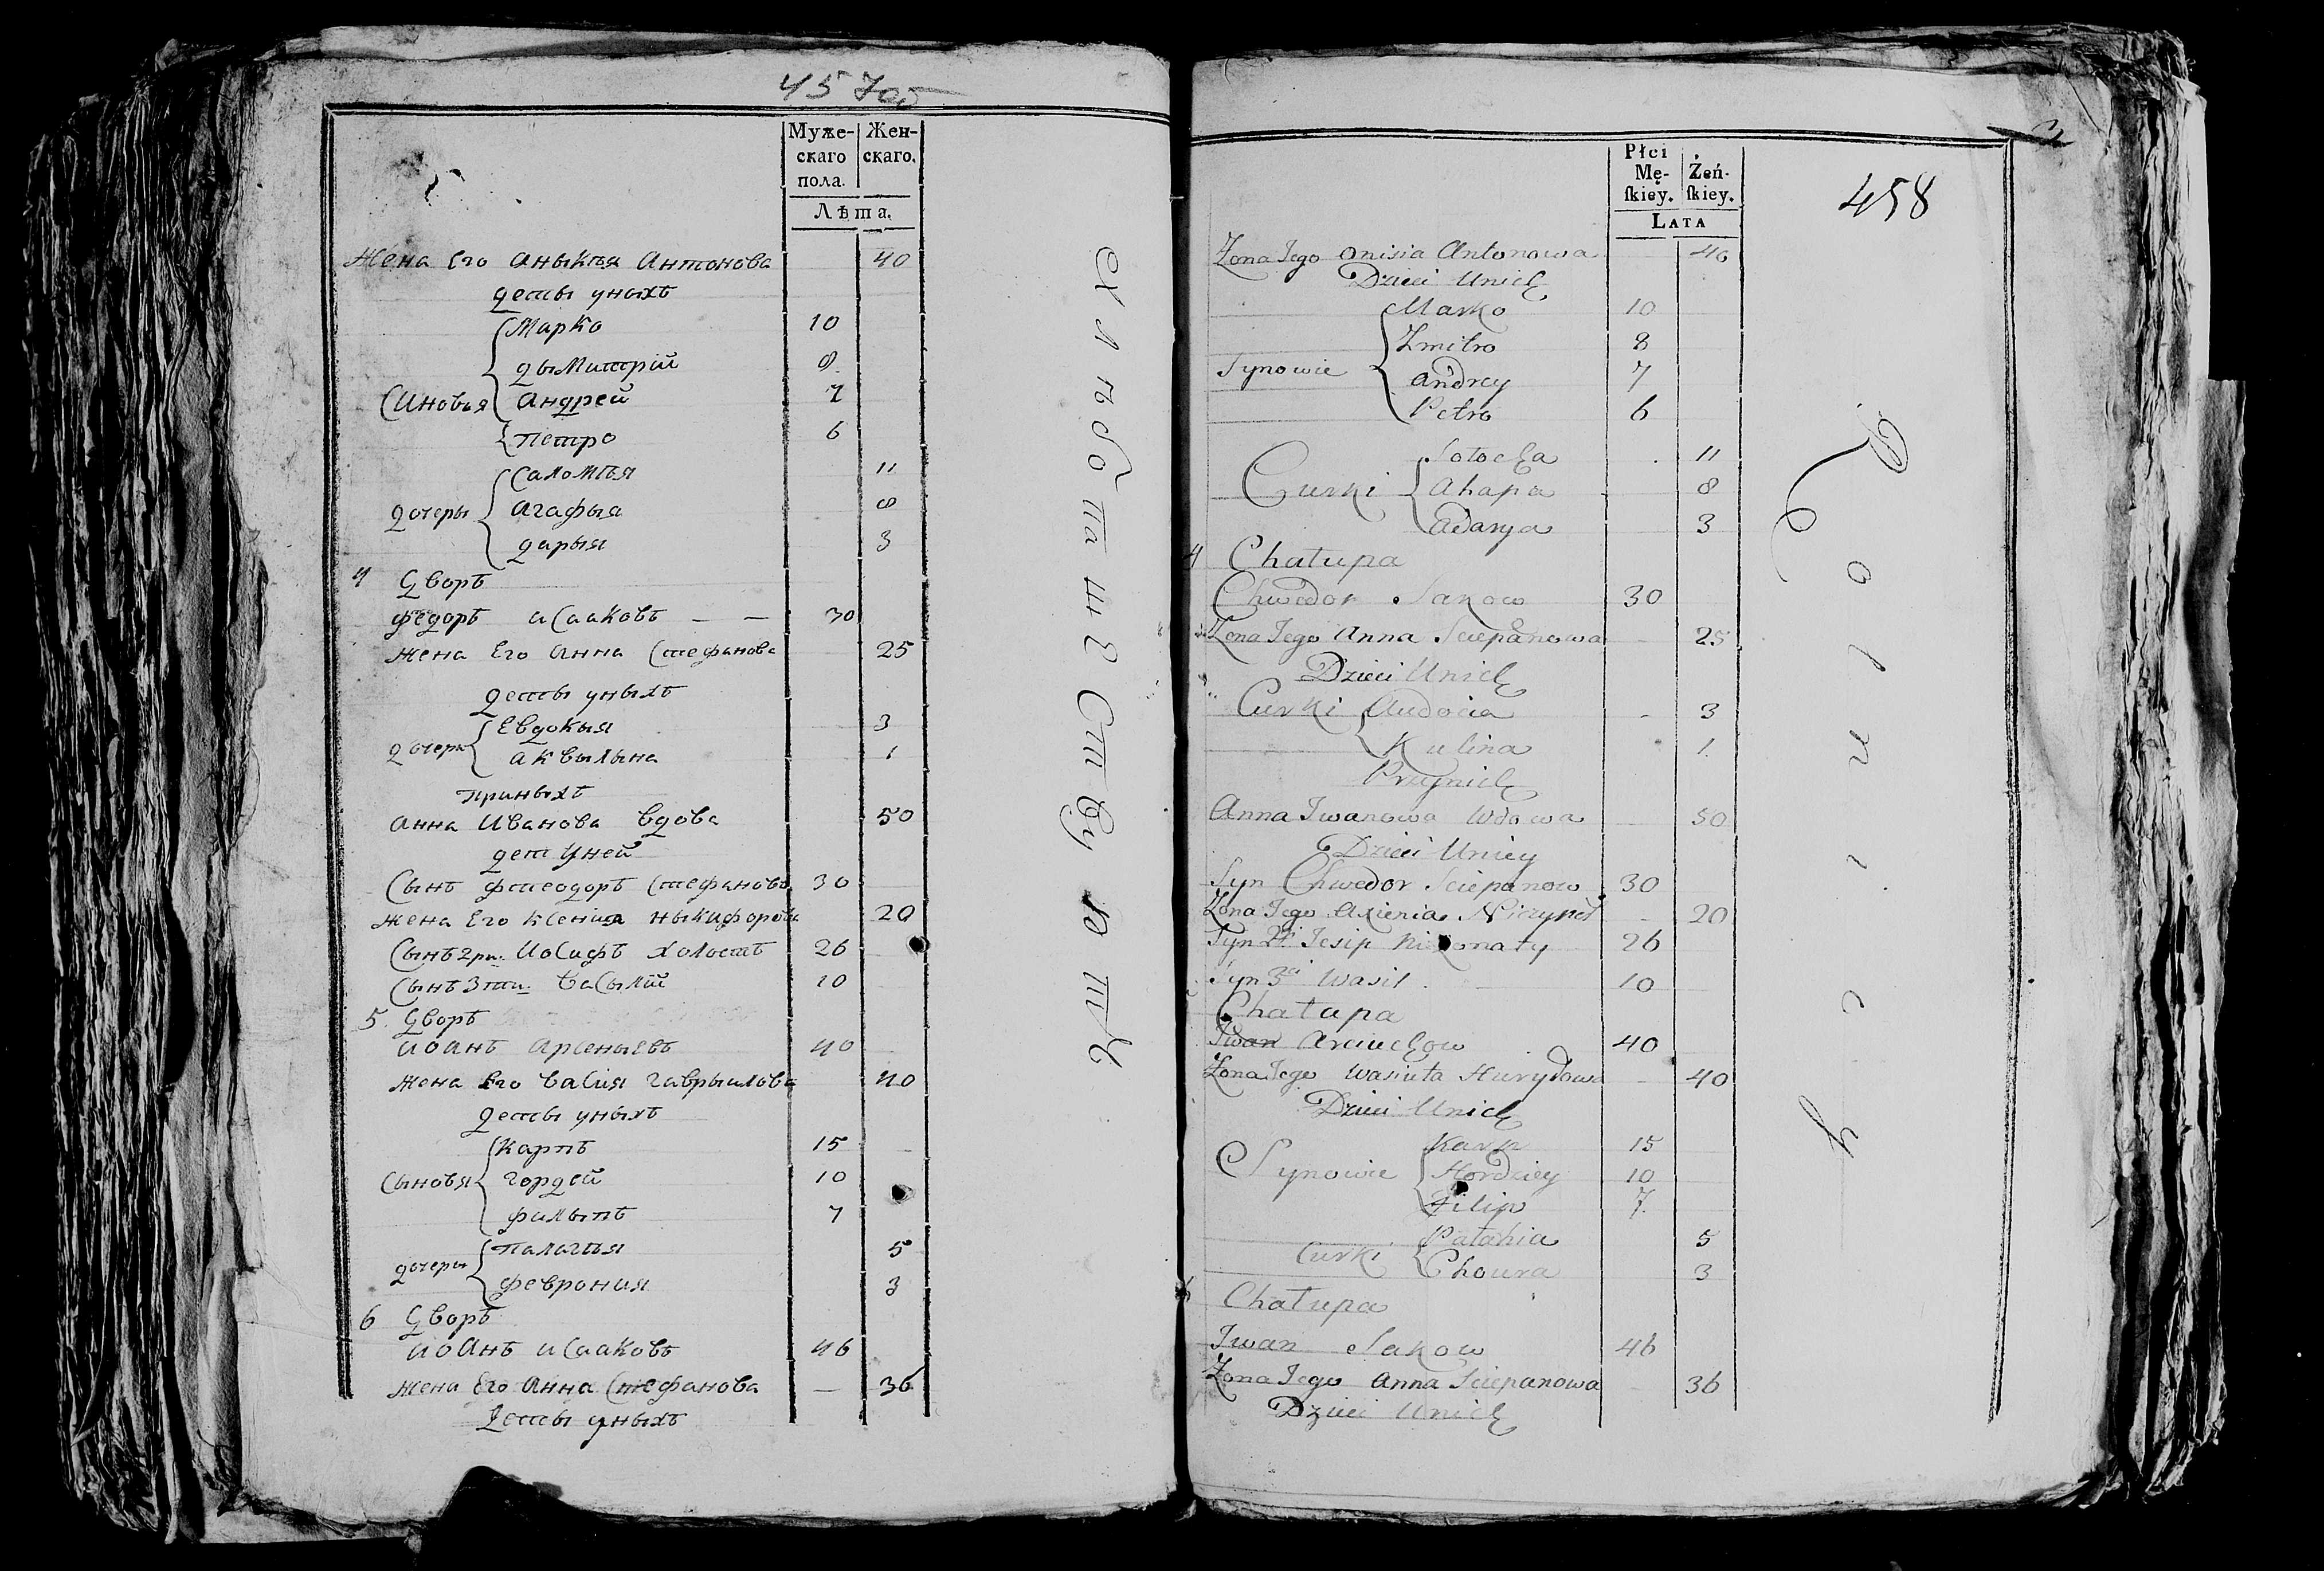 457 об
Муже-
скаго
пола.
Жен-
скаго.
Лѣта.
Жена Его Аныкѣя Антонова 40
деты уныхъ
Марко 10
дымитрій 8
Сыновья Андрей 7
Петро 6
Саломѣя 11
дочеры Агафыа 8
дарыя 3
4 дворъ
федоръ исааковъ — — 30
жена Его Анна Стефанова 25
деты уныхъ
Евдокыя 3
дочеры
Аквылына 1
приныхъ
Анна Иванова вдова 50
дет уней
Сынъ фтеодоръ Стефановъ 30
жена Его Ксенія ныкифорова 20
Сынъ 2ри. Иосифъ холостъ 26
Сынъ 3ти. Васылій 10
5. дворъ
иоанъ Арсеныевъ 40
жена Его Васия Гаврыилова 40
деты уныхъ
Карпъ 15
Сыновя Гордей 10
филыпъ 7
Палагѣя 5
дочеры
феврония 3
6 дворъ
иоанъ исааковъ 46
жена Его Анна Стефанова — 36
деты уныхъ
хлѣбопашествуютъ
Płci
Mę-
ſkiey.
Żeń-
ſkiey.
LATA
458
Zona Jego Onisia Antonowa 40
Dzieci Unich
Marko 10
Zmitro 8
Synowie
Andrey 7
Petro 6
Sołocha 11
Curki Ahapa 8
Adarya 3
4 Chałupa
Chwedor Sakow 30
Zona Jego Anna Sciepanowa 25
Dzieci Unich
Curki Audocia 3
Kulina 1.
Przynich
Anna Iwanowa Wdowa 50
Dzieci Uniey
Syn Chwedor Sciepanow 30
Zona Jego Axienia 20
Syn 2gi Jesip Nieżonaty 26
Syn 3ci Wasil 10
Chałupa
Iwan Arciuchow 40
Zona Jego Wasiuta Hurydowa 40
Dzieci Unich
Karp 15
Synowie Hordziey 10
Filip 7.
Pałahia 5
Curki
Choura 3
Chałupa
Iwan Sakow 46
Zona Jego Anna Sciepanowa 36
Dzieci Unich
Rolnicy